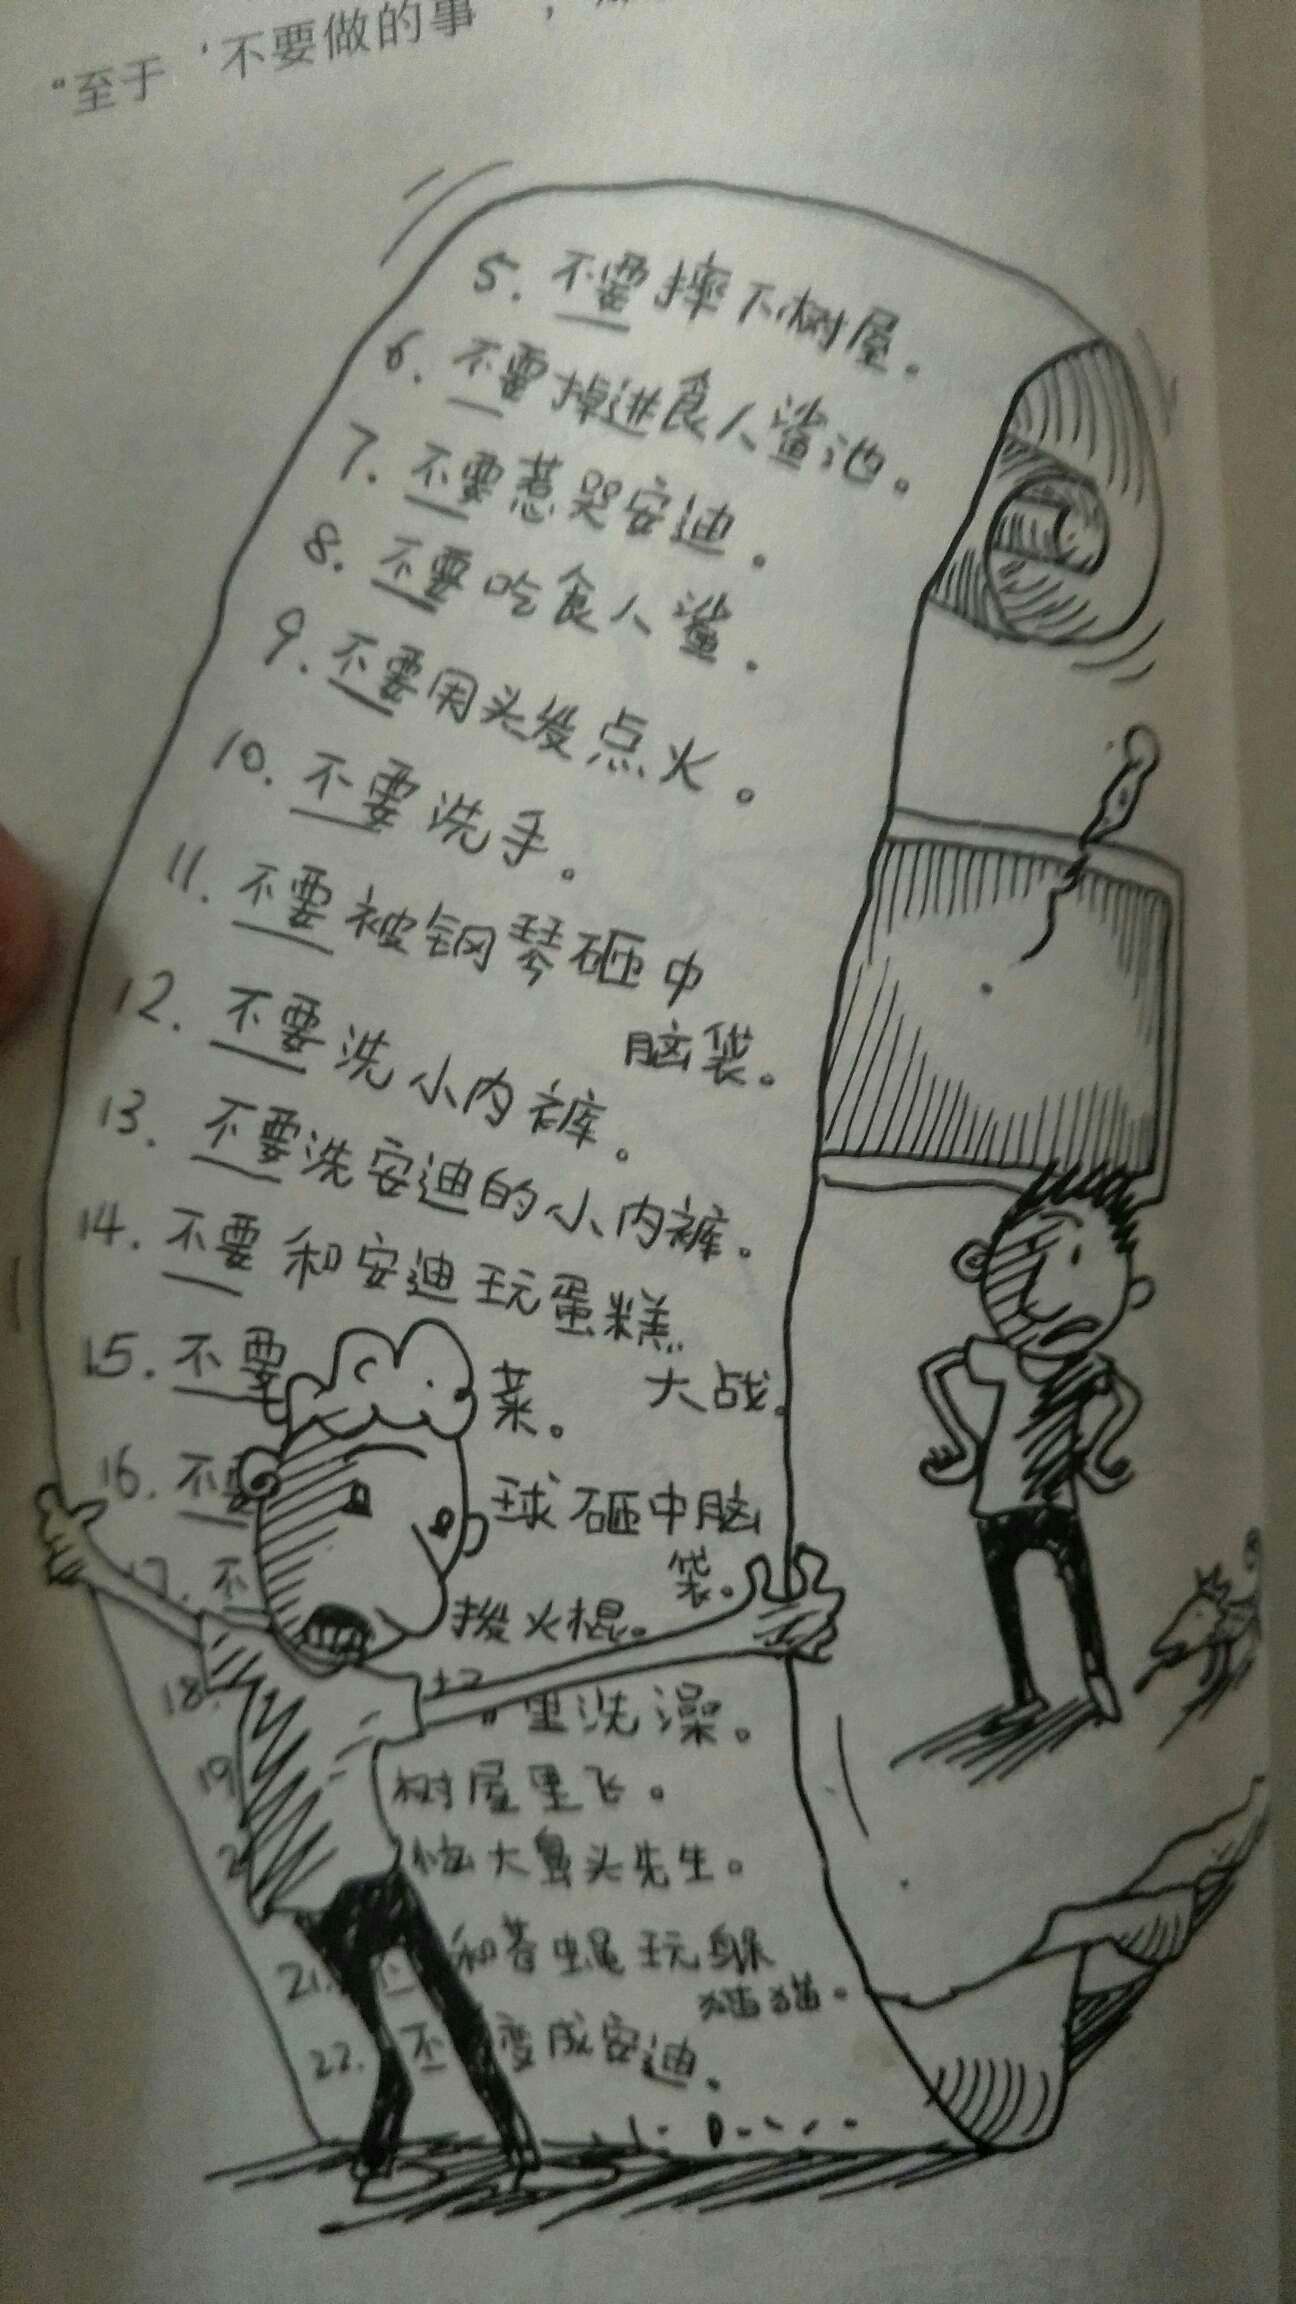 “至于‘不要做的事’，
5. 不要摔下树屋。
6. 不要掉进食人鲨池。
7. 不要惹哭安迪。
8. 不要吃食人鲨。
9. 不要用头发点火。
10. 不要洗手。
11. 不要被钢琴砸中
脑袋。
12. 不要洗小内裤。
13. 不要洗安迪的小内裤。
14. 不要和安迪玩蛋糕
大战。
15. 不要 菜。
16. 不要 球砸中脑
袋。
17. 不 拨火棍。
18. 里洗澡。
19 树屋里飞。
2 恼大鼻头先生。
21. 不 和苍蝇玩躲
猫猫。
22. 不 变成安迪。